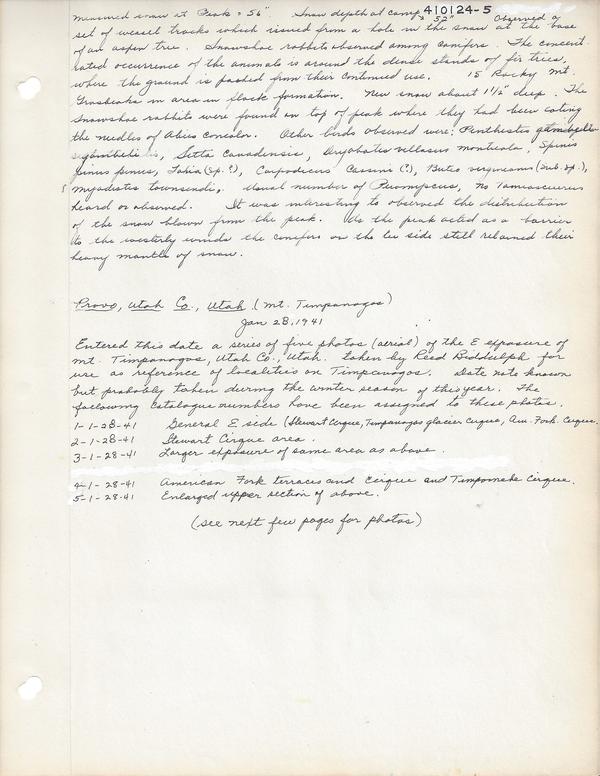 410124-5
measured snow at Peak = 56". Snow depth at camp = 52" Observed a
set of weasel tracks which issued from a hole in the snow at the base
of an aspen tree. Snowshoe rabbits observed among conifers. The concent-
rated occurrence of the animals is around the dense stands of fir trees,
where the ground is packed from their continued use. 15 Rocky Mt.
Grosbeaks in area in flock formation. New snow about 1 1/2" deep. The
snowshoe rabbits were found on top of peak where they had been eating
the needles of Abies concolor. Other birds observed were: Penthestes gambeli
, Sitta canadensis, Dryobates villosus monticola, Spinus
pinus pinus, (sp.?), Carpodacus cassini (?), Buteo (sub. sp.),
Myadistes townsendi, Usual number of Peromyscus, No Tamiasciurus
heard or observed. It was interesting to observed the distribution
of the snow blown from the peak. As the peak acted as a barrier
to the westerly winds the conifers on the lee side still retained their
heavy mantle of snow.
Provo, Utah Co., Utah. (Mt. Timpanogos)
Jan 28, 1941
Entered this date a series of five photos (aerial) of the E exposure of
Mt. Timpanogos, Utah Co., Utah. taken by Reed Biddulph for
use as reference of localities on Timpanogos. Date not known
but probably taken during the winter season of this year. The
following catalogue numbers have been assigned to these photos.
1-1-28-41 General E side (Stewart Cirque, Timpanogos glacier cirque, Am. Fork. Cirque.
2-1-28-41 Stewart Cirque area.
3-1-28-41 Larger exposure of same area as above.
4-1-28-41 American Fork terraces and Cirque and Timponeke Cirque.
5-1-28-41 Enlarged upper section of above.
(see next few pages for photos)